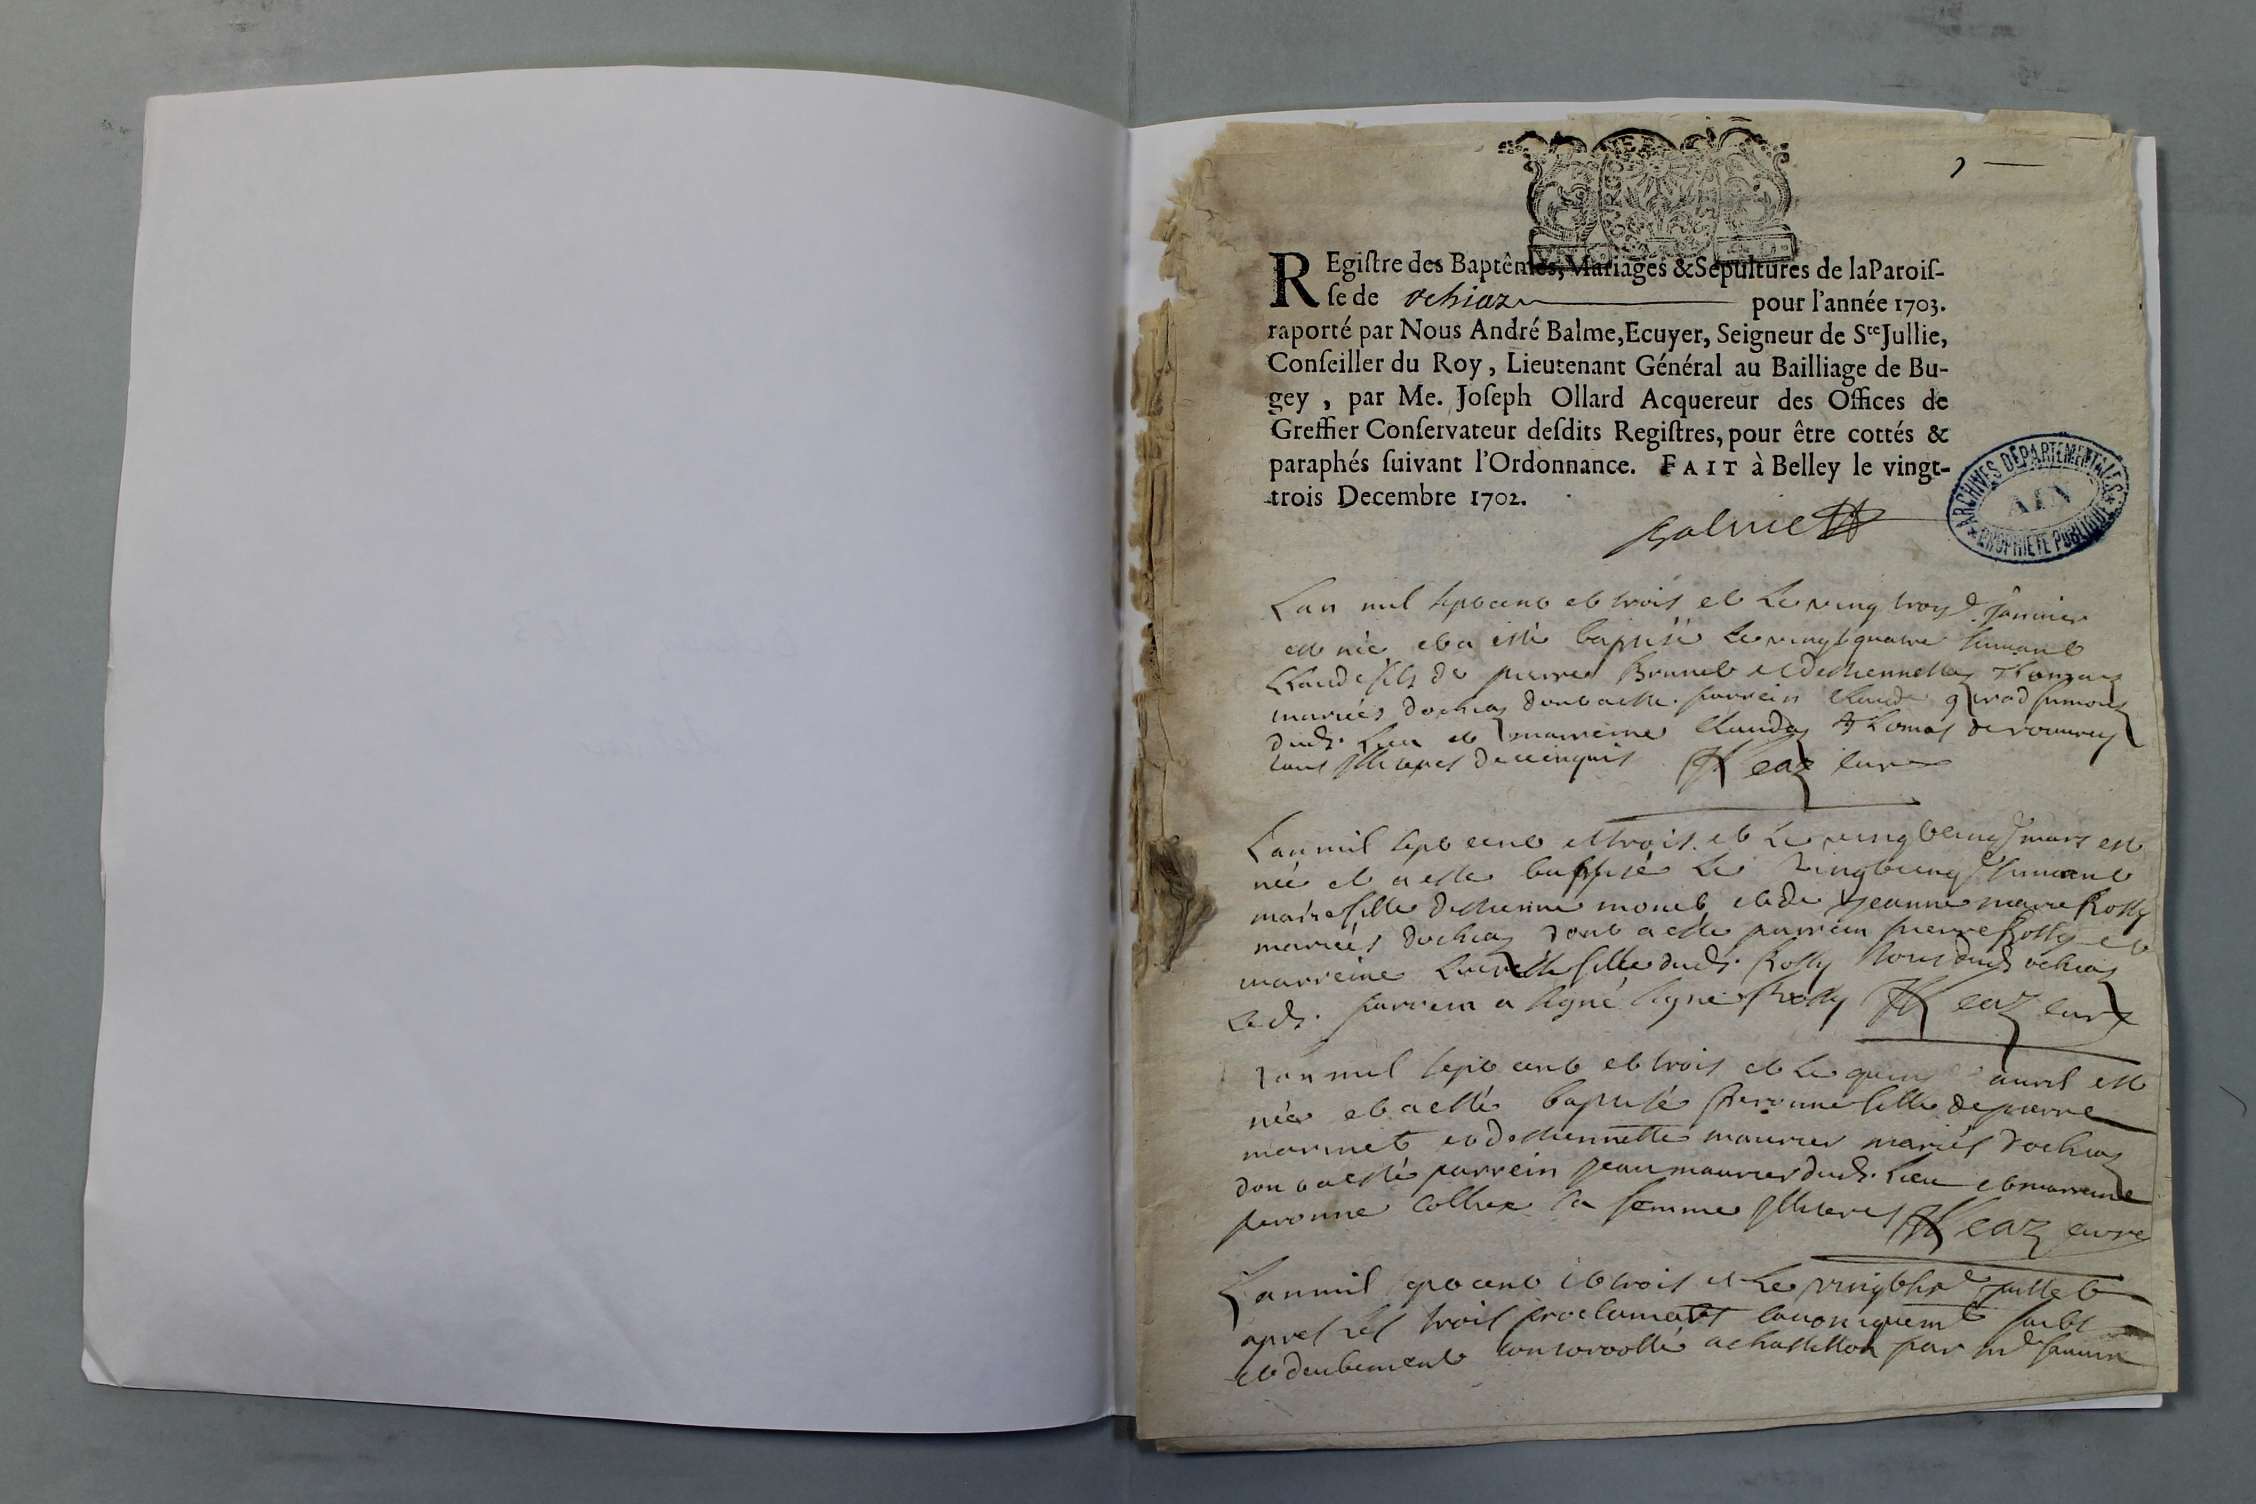 REgiſtre des Baptêmes, Mariages & Sepultures de la Paroiſ-
ſe de ochiaz pour l'année 1703.
raporté par Nous André Balme, Ecuyer, Seigneur de Ste Jullie,
Conſeiller du Roy, Lieutenant Général au Bailliage de Bu-
gey, par Me. Joſeph Ollard Acquereur des Offices de
Greffier Conſervateur deſdits Regiſtres, pour être cottés &
paraphés ſuivant l'Ordonnance. FAIT à Belley le vingt-
trois Decembre 1702.
ARCHIVES DÉPARTEMENTALES
AIN
PROPRIÉTÉ PUBLIQUE
Balme
Lan mil sept cent et trois et le ving troy janvier
est née et a esté baptisé le vingt quatre suivant
Claude fils de pierre Brunet et destiennette Thomas
mariés dochiaz dont a esté parrein Claude
dud. lieu et marreine Claudaz Thomas
tous illiteres de ce enquis Reaz curé
Lan mil sept cent et trois et le vingt cinq mars est
née et a esté baptisé le suivant
marie fille destienne monet et de jeanne marie Rossy
mariés dochiaz dont a esté parrein pierre Rossy et
marreine fille dud. Rossy tous dud. ochiaz
led. parrein a signé signé Rossy Reaz curé
Lan mil sept cent et trois et le avril est
née et a esté baptisé peronne fille de pierre
marinet et destiennette maurier mariés dochiaz
dont a esté parrein jean maurier dud. lieu et marreine
peronne collier sa femme illiteres Reaz curé
Lan mil sept cent et trois et le juillet
apres les trois proclamats canoniquemt faits
et deubement controollé a chastillon par